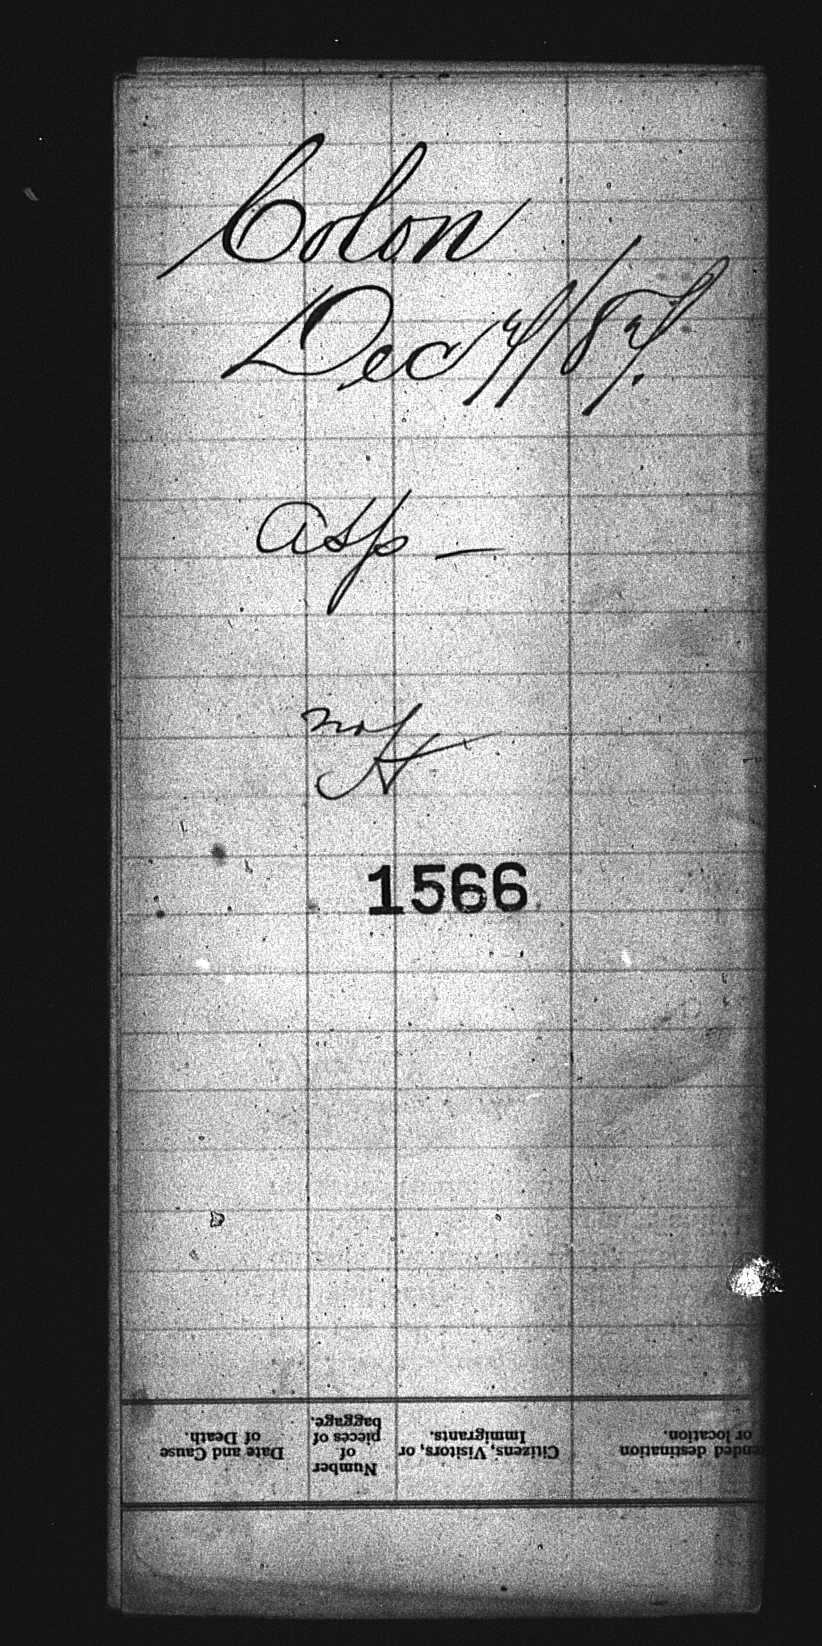 Colon
Dec 7/87.
Asp —
1566
Date and Cause
of Death.
Number
of
pieces of
baggage.
Citizens, Visitors, or
Immigrants.
ended destination
or location.